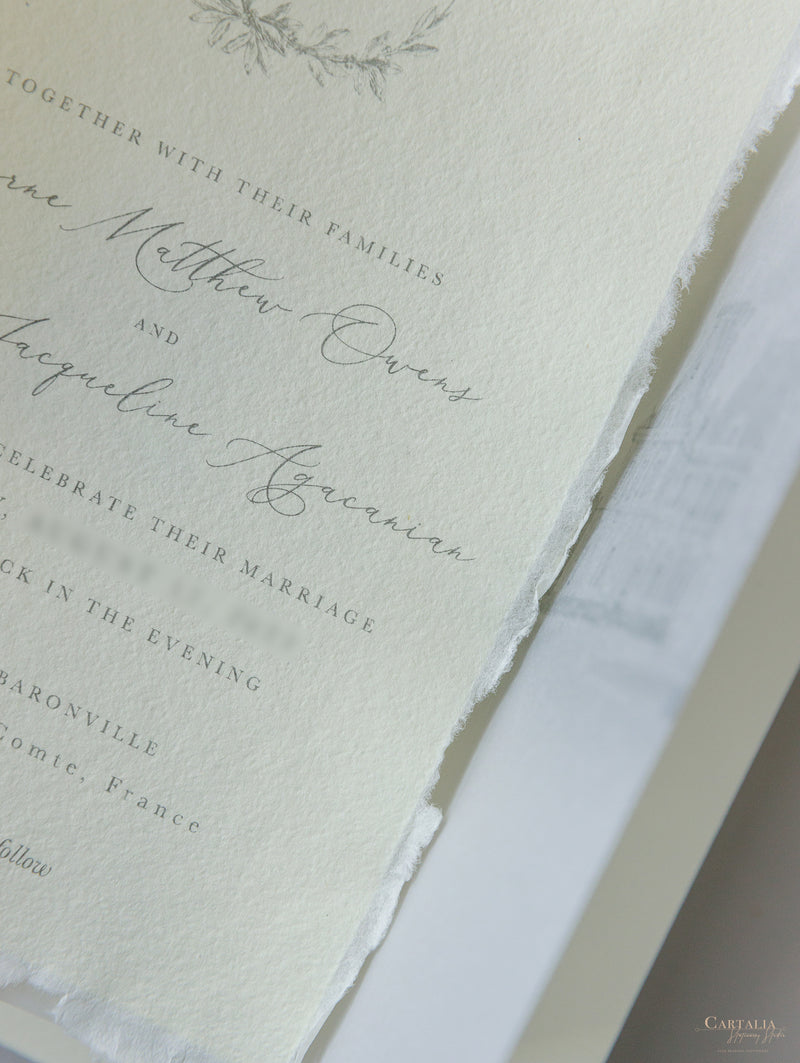 TOGETHER WITH THEIR FAMILIES
rne Matthew Owens
AND
Jacqueline Agacanian
CELEBRATE THEIR MARRIAGE
CK IN THE EVENING
BARONVILLE
Comte, France
follow
CARTALIA
Stationery Studio